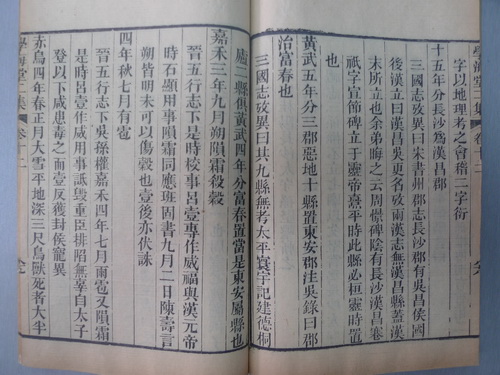 學海堂二集 卷十二
字以地理考之會稽二字衍
十五年分長沙爲漢昌郡
三國志攷異曰宋書州郡志長沙郡有吳昌侯國
後漢立曰漢昌吳更名攷兩漢志無漢昌縣蓋漢
末所立也余弟晦之云周憬碑陰有長沙漢昌蹇
祇字宣節碑立于靈帝熹平時此縣必桓靈時置
也
黃武五年分三郡惡地十縣置東安郡注吳錄曰郡
治富春也
三國志攷異曰其九縣無考太平寰宇記建德桐
廬二縣俱黃武四年分富春置當是東安屬縣也
嘉禾三年九月朔隕霜傷穀
晉五行志下是時校事呂壹專作威福與漢元帝
時石顯用事隕霜同應班固書九月二日陳壽言
朔皆明未可以傷穀也壹後亦伏誅
四年秋七月有雹
晉五行志下吳孫權嘉禾四年七月雨雹又隕霜
是時呂壹作威用事詆毀重臣排陷無辜自太子
登以下咸患毒之而壹反獲封侯寵異
赤烏四年春正月大雪平地深三尺鳥獸死者大半
學海堂二集 卷十二